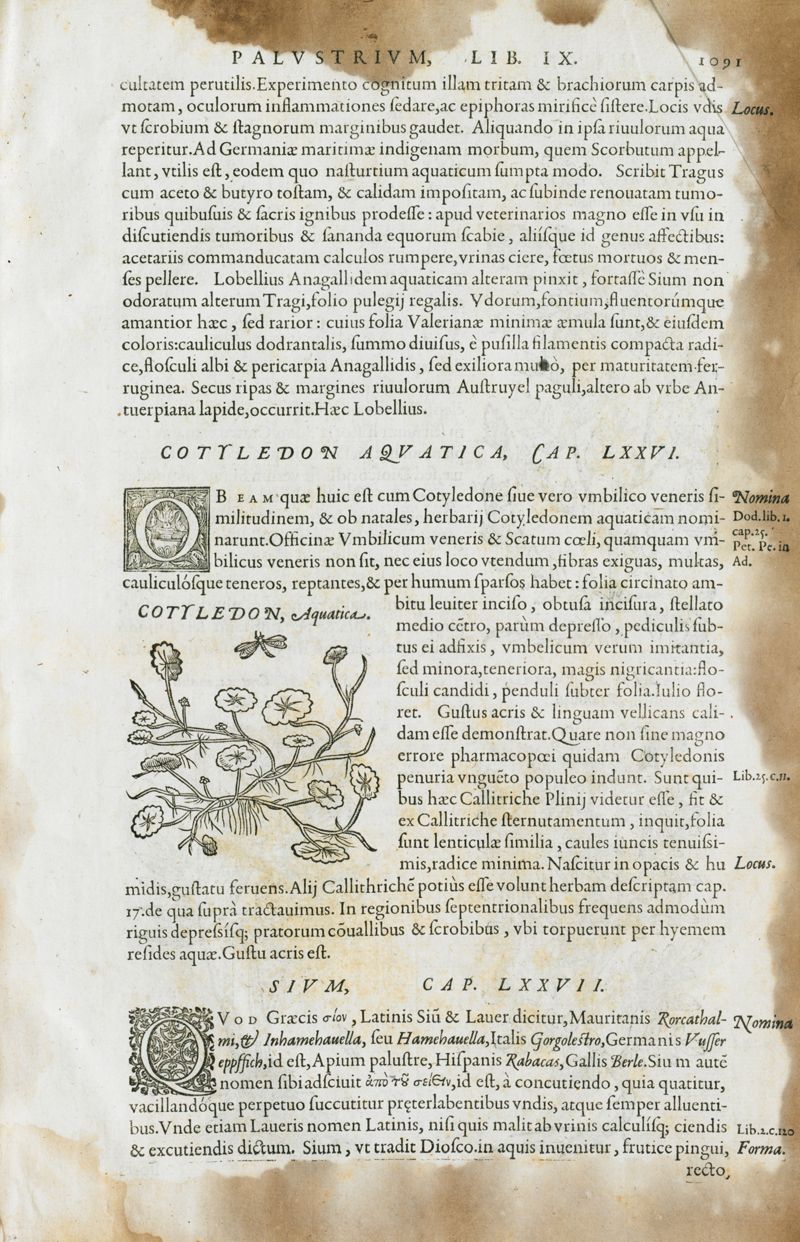 PALVSTRIVM, LIB. IX. 1091
cultatem perutilis.Experimento cognitum illam tritam & brachiorum carpis ad-
motam, oculorum inflammationes ſedare,ac epiphoras mirificè ſiſtere.Locis vdis Locus.
vt ſcrobium & ſtagnorum marginibus gaudet. Aliquando in ipſa riuulorum aqua
reperitur.Ad Germaniæ maritimæ indigenam morbum, quem Scorbutum appel-
lant, vtilis eſt, eodem quo naſturtium aquaticum ſumpta modo. Scribit Tragus
cum aceto & butyro toſtam, & calidam impoſitam, ac ſubinde renouatam tumo-
ribus quibuſuis & ſacris ignibus prodeſſe : apud veterinarios magno eſſe in vſu in
diſcutiendis tumoribus & ſananda equorum ſcabie, aliíſque id genus affectibus:
acetariis commanducatam calculos rumpere,vrinas ciere, fœtus mortuos & men-
ſes pellere. Lobellius Anagallidem aquaticam alteram pinxit, fortaſſè Sium non
odoratum alterum Tragi,folio pulegij regalis. Vdorum,fontium,fluentorúmque
amantior hæc, ſed rarior : cuius folia Valerianæ minimæ æmula ſunt,& eiuſdem
coloris:cauliculus dodrantalis, ſummo diuiſus, è puſilla filamentis compacta radi-
ce,floſculi albi & pericarpia Anagallidis, ſed exiliora multò, per maturitatem fer-
ruginea. Secus ripas & margines riuulorum Auſtruyel paguli,altero ab vrbe An-
tuerpiana lapide,occurrit.Hæc Lobellius.
COTYLEDON AQVATICA, CAP. LXXVI.
OB EAM quæ huic eſt cum Cotyledone ſiue vero vmbilico veneris ſi- Nomina
militudinem, & ob natales, herbarij Cotyledonem aquaticam nomi- Dod.lib.1.
narunt.Officinæ Vmbilicum veneris & Scatum cœli, quamquam vm- cap.25.
Pet. Pe. in
bilicus veneris non ſit, nec eius loco vtendum, fibras exiguas, multas, Ad.
cauliculóſque teneros, reptantes,& per humum ſparſos habet : folia circinato am-
COTYLEDON, Aquatica.
bitu leuiter inciſo, obtuſa inciſura, ſtellato
medio cētro, parùm depreſſo, pediculis ſub-
tus ei adfixis, vmbelicum verum imitantia,
ſed minora,teneriora, magis nigricantia:flo-
ſculi candidi, penduli ſubter folia.Iulio flo-
ret. Guſtus acris & linguam vellicans cali-
dam eſſe demonſtrat.Quare non ſine magno
errore pharmacopœi quidam Cotyledonis
penuria vnguēto populeo indunt. Sunt qui- Lib.25.c.11.
bus hæc Callitriche Plinij videtur eſſe, fit &
ex Callitriche ſternutamentum, inquit,folia
ſunt lenticulæ ſimilia, caules iuncis tenuiſsi-
mis,radice minima. Naſcitur in opacis & hu Locus.
midis,guſtatu feruens.Alij Callithrichē potiùs eſſe volunt herbam deſcriptam cap.
17.de qua ſuprà tractauimus. In regionibus ſeptentrionalibus frequens admodùm
riguis depreſsíſq; pratorum cōuallibus & ſcrobibus, vbi torpuerunt per hyemem
reſides aquæ.Guſtu acris eſt.
SIVM, CAP. LXXVII.
QVOD Græcis σίον, Latinis Siū & Lauer dicitur, Mauritanis Korcathal- Nomina
mi,& Inhamehauella, ſeu Hamehauella,Italis Gorgoleſtro,Germanis Vuſſer
eppſfich,id eſt, Apium paluſtre, Hiſpanis Rabacas, Gallis Berle.Siu m autē
nomen ſibi adſciuit ἀπὸ τοῦ σείειν,id eſt, à concutiendo, quia quatitur,
vacillandóque perpetuo ſuccutitur pręterlabentibus vndis, atque ſemper alluenti-
bus.Vnde etiam Laueris nomen Latinis, niſi quis malit ab vrinis calculíſq; ciendis Lib.2.c.120
& excutiendis dictum. Sium, vt tradit Dioſco.in aquis inuenitur, frutice pingui, Forma.
recto,